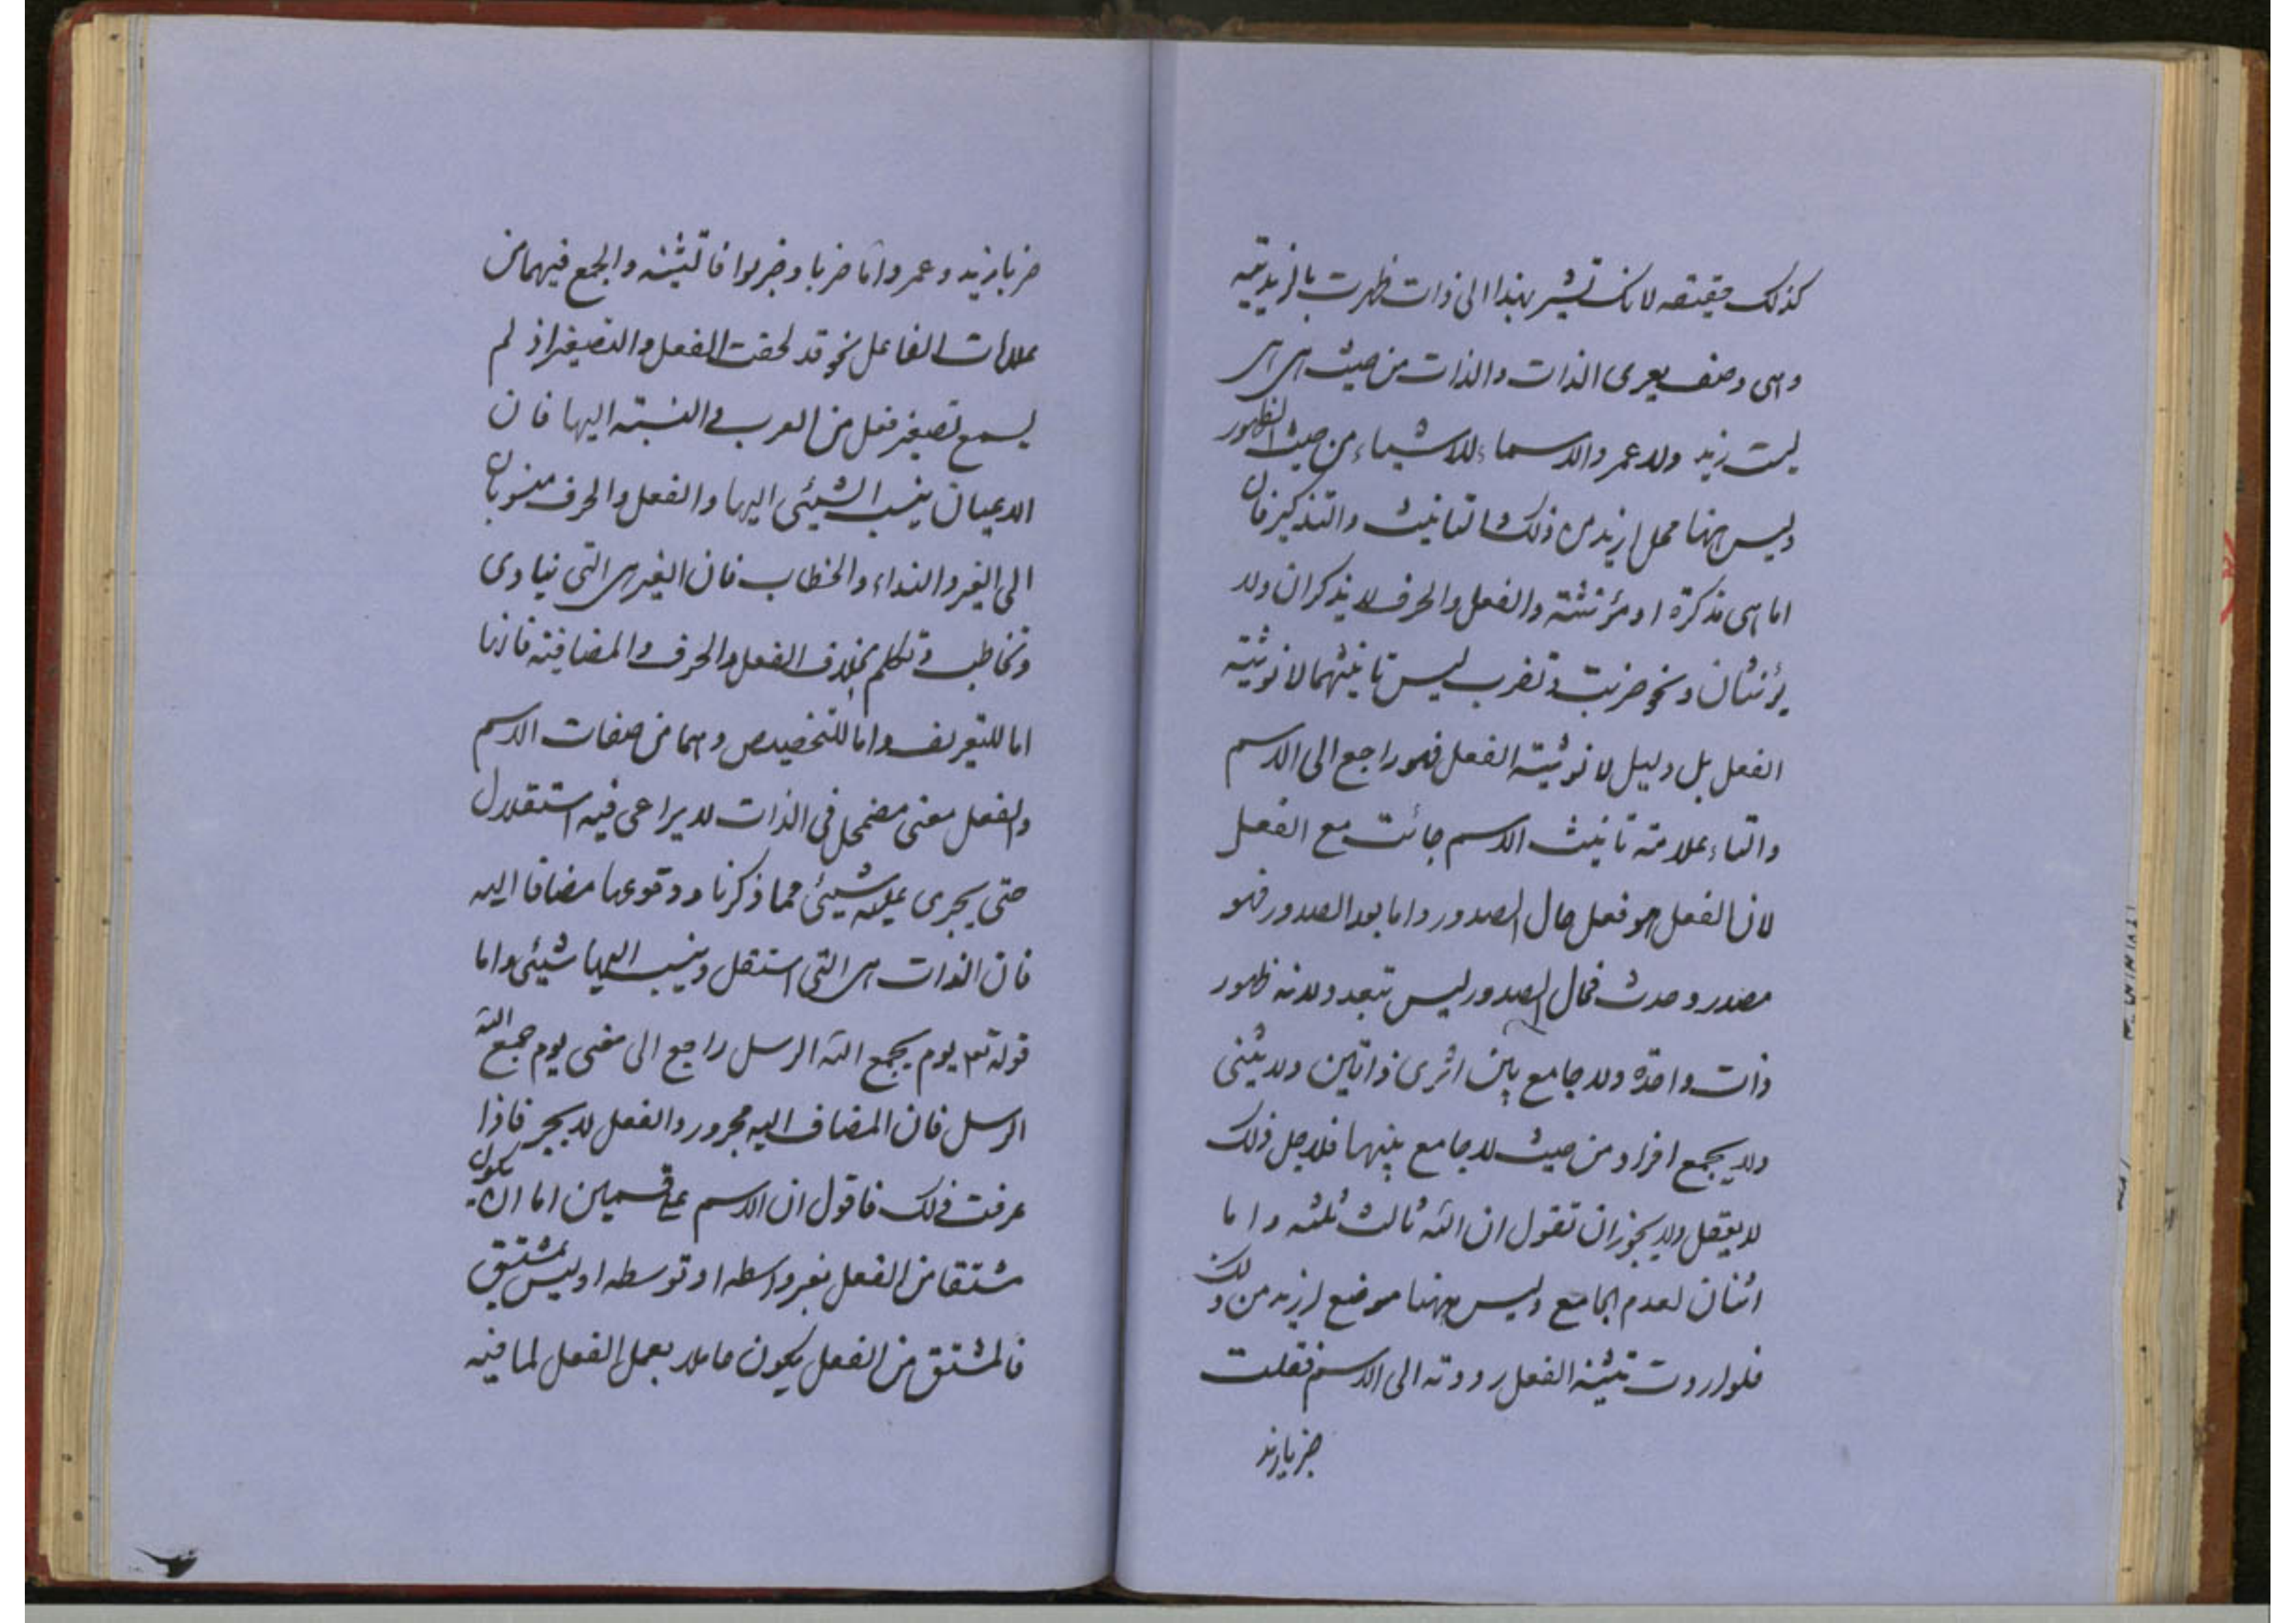 كذلك حقيقته لانك تشير بهذا الى ذات ظهرت بالزيدية
وهى وصف يعرى الذات والذات من حيث هى هى
ليست زيد ولا عمر والاسماء للاشياء من حيث الظهور
وليس ههنا محل ازيد من ذلك والتانيث والتذكير فان
اما هى مذكرة او مؤنثة والفعل والحرف لا يذكران ولا
يؤنثان ونحو ضربت وتضرب ليس تانيثهما لانوثية
الفعل بل دليل لانوثية الفعل فهو راجع الى الاسم
والتاء علامة تانيث الاسم جائت مع الفعل
لان الفعل هو فعل حال الصدور واما بعد الصدور فهو
مصدر وحدث فحال الصدور ليس تبعد ولانه ظهور
ذات واحدة ولا جامع بين اثرى ذاتين ولا يثنى
ولا يجمع افراد من حيث لا جامع بينها فلاجل ذلك
لا يعقل ولا يجوز ان تقول ان الله ثالث ثلثه واما
اثنان لعدم الجامع وليس ههنا موضع ازيد من ذلك
فلو اردت تثنية الفعل رددته الى الاسم فقلت
ضربا زيد
ضربا زيد وعمر واما ضربا وضربوا فالتثنية والجمع فيهما من
علامات الفاعل نحو قد لحقت الفعل والتصغير اذ لم
يسمع تصغير فعل من العرب والنسبة اليها فان
الاعيان ينسب الشيئى اليها والفعل والحرف منسوبان
الى الغير والنداء والخطاب فان الغير هى التى ينادى
وتخاطب وتكلم بخلاف الفعل والحرف والمضافية فانها
اما للتعريف واما للتخصيص وهما من صفات الاسم
والفعل معنى مضمحل فى الذات لا يراعى فيه استقلال
حتى يجرى عليه شيئى مما ذكرنا ووقوعها مضافا اليه
فان الذات هى التى استقل وينسب اليها شيئى واما
قوله تعـ يوم يجمع الله الرسل راجع الى معنى يوم جمع الله
الرسل فان المضاف اليه مجرور والفعل لا يجر فاذا
عرفت ذلك فاقول ان الاسم على قسمين اما ان يكون
مشتقا من الفعل بغير واسطه او توسطه او ليس بمشتق
فالمشتق من الفعل يكون عاملا بعمل الفعل لما فيه